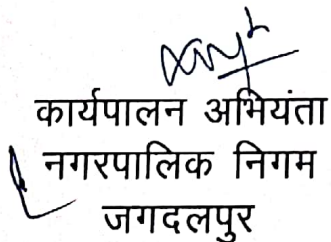 कार्यपालन अभियंता
नगरपालिक निगम
जगदलपुर